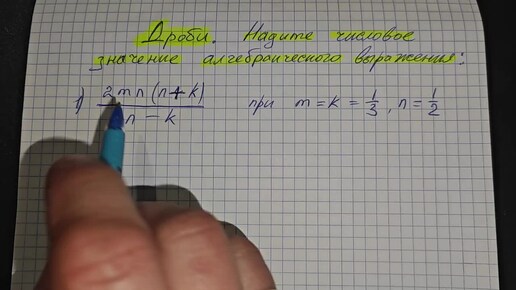 Дроби. Надите числовое
значение алгебраического выражения:
1) 2mn(n+k) / n - k при m = k = 1/3, n = 1/2